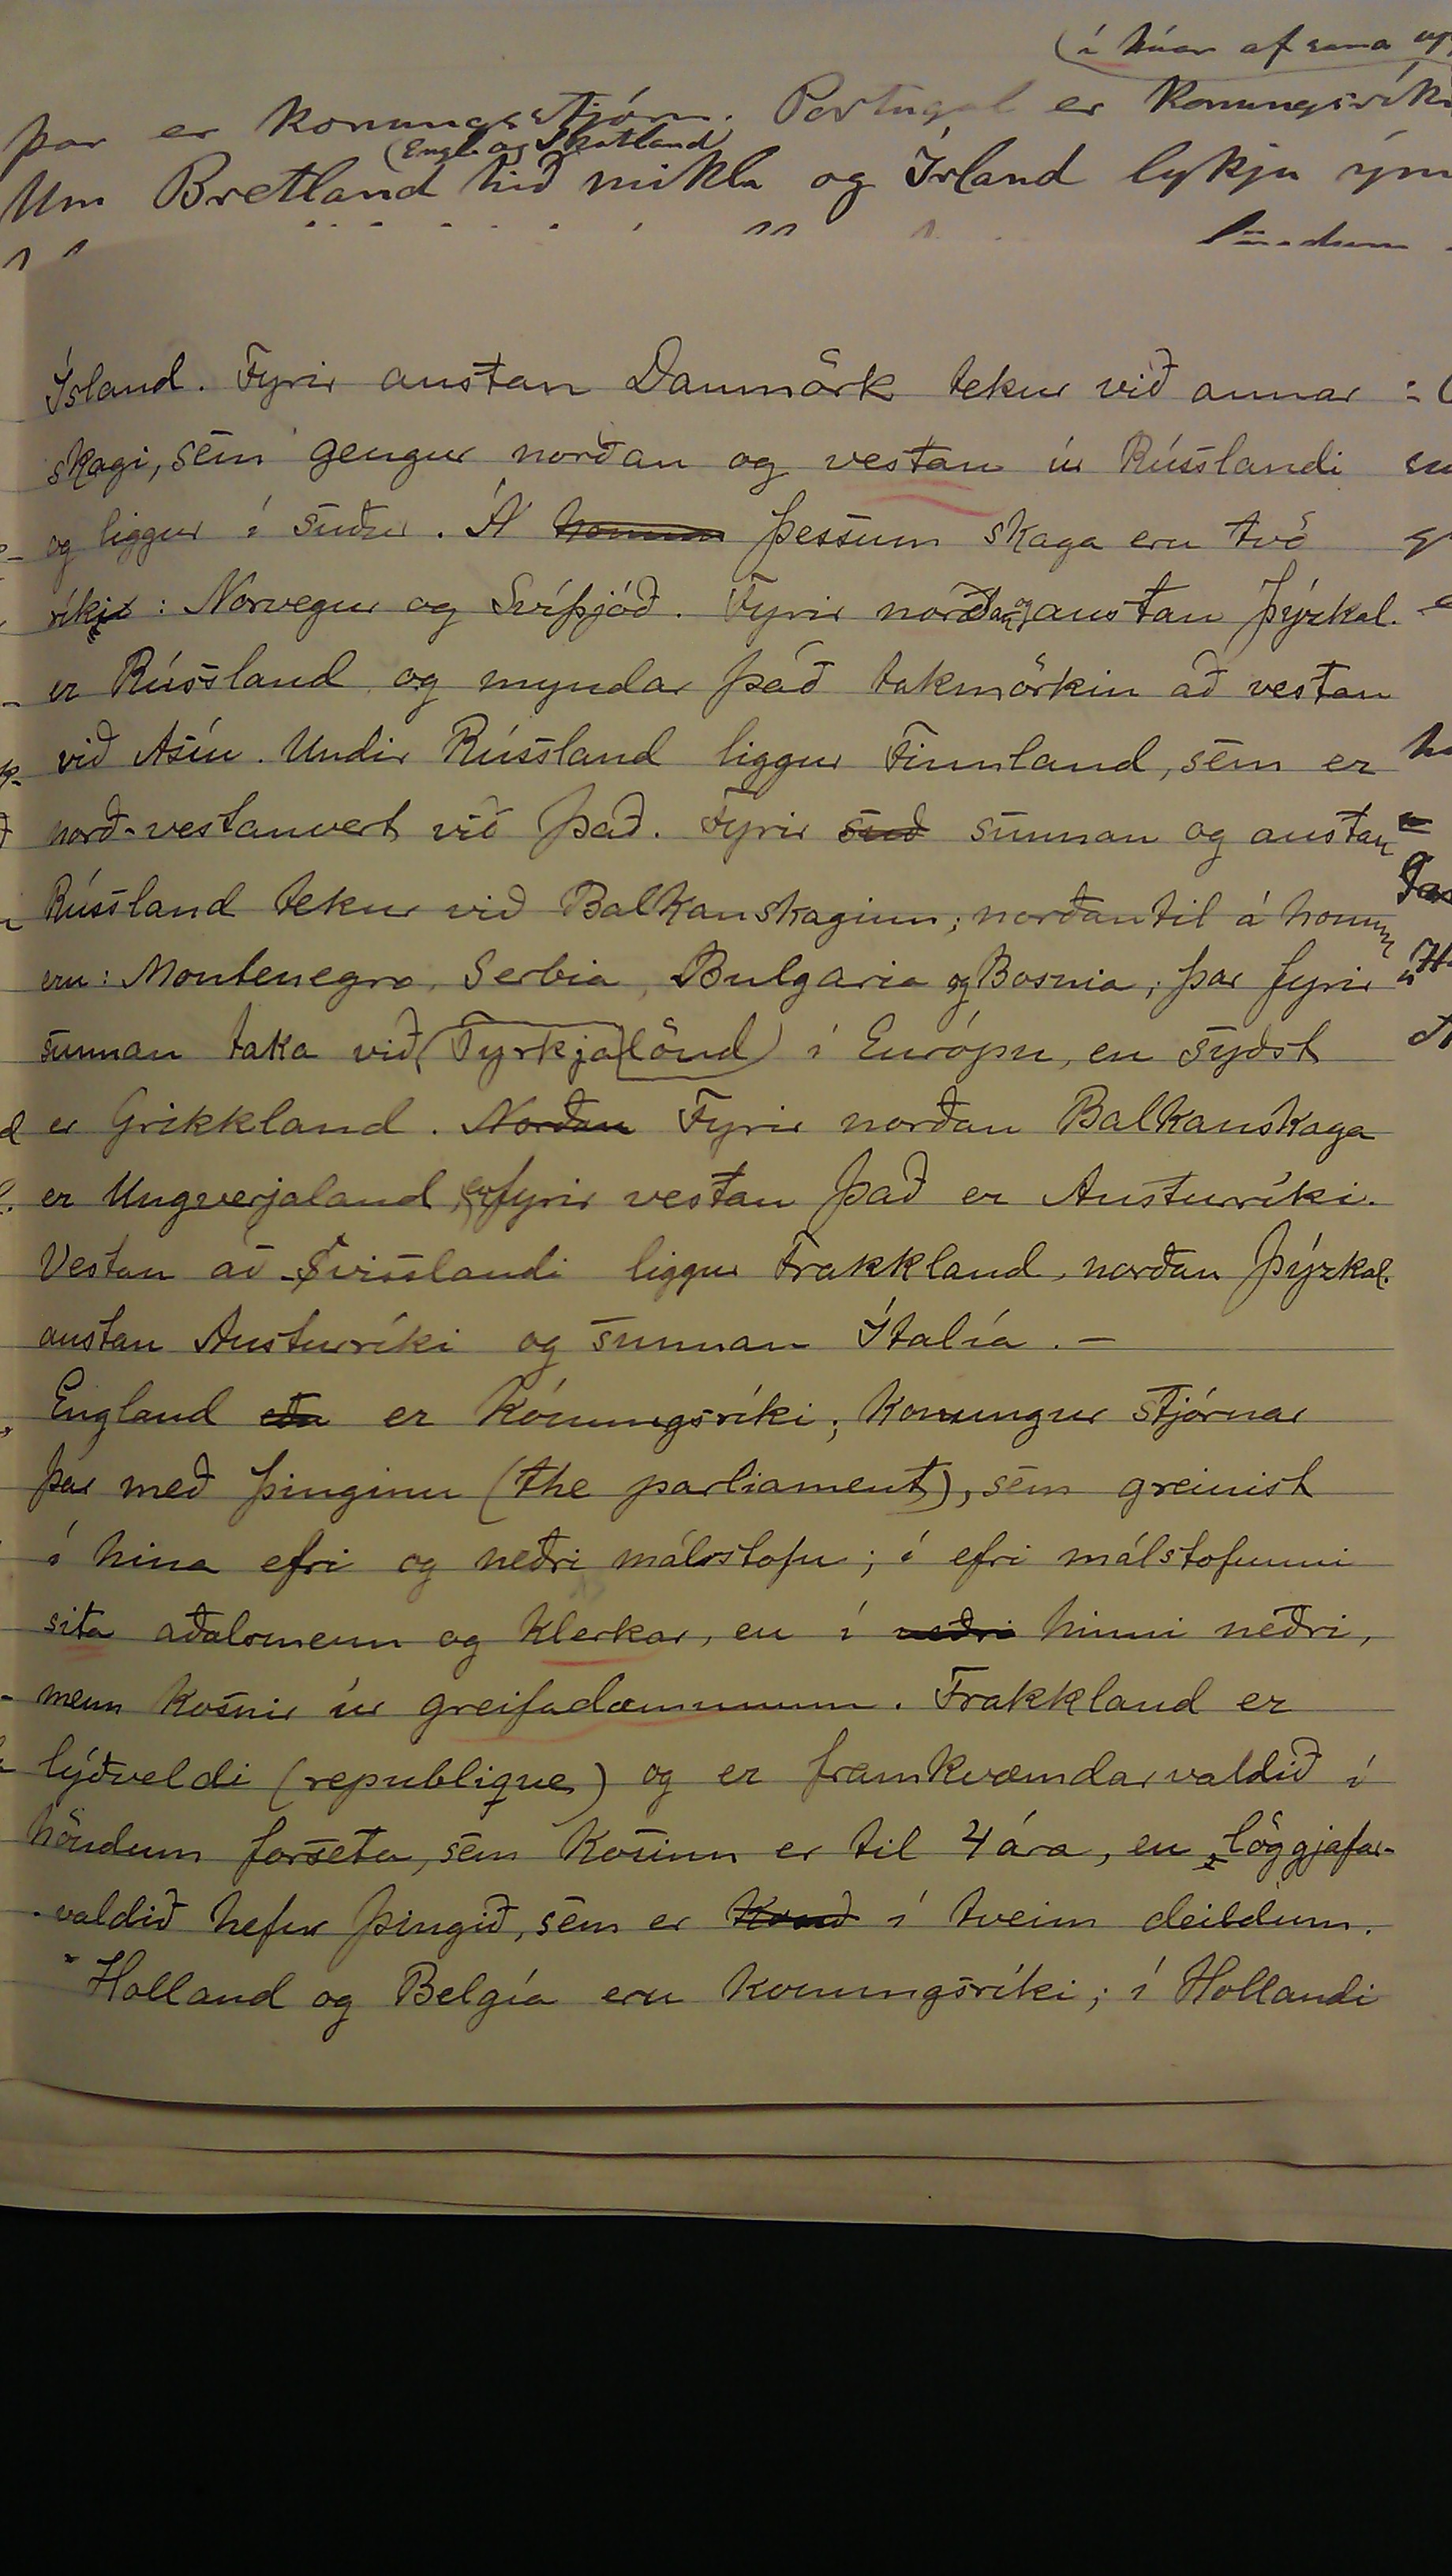 (í hvor af sama
þar er konungsstjórn. Portugal er Konungsríki
(Engl. og Skotland)
Um Bretland hið mikla og Írland lykja ým
löndum
Ísland. Fyrir austan Danmörk tekur við annar
skagi, sem gengur norðan og vestan úr Rússlandi
og liggur í suður. Á honum þessum skaga eru tvö
ríki: Norvegur og Svíþjóð. Fyrir norðan og austan Þýzkal.
er Rússland og myndar það takmörkin að vestan
við Asíu. Undir Rússland liggur Finnland, sem er
norð-vestanvert við það. Fyrir suð sunnan og austan
Rússland tekur við Balkanskaginn; norðantil á honum
eru: Montenegro, Serbia, Bulgaria og Bosnia, þar fyrir
sunnan taka við (Tyrkjalönd) í Európu, en syðst
er Grikkland. Norðan Fyrir norðan Balkanskaga
er Ungverjaland, en fyrir vestan það er Austurríki.
Vestan að Svisslandi liggur Frakkland, norðan Þýzkal.
austan Austurríki og sunnan Ítalía. —
England eða er Kóningsríki; Konungur stjórnar
þar með þinginu (the parliament), sem greinist
í hina efri og neðri málsstofu; í efri málstofunni
sita aðalsmenn og klerkar, en í neðri hinni neðri,
menn kosnir úr greifadæmunum. Frakkland er
lýðveldi (republique) og er framkvæmdarvaldið í
höndum forseta, sem kosinn er til 4 ára, en löggjafar-
valdið hefur þingið, sem er í tveim deildum.
Holland og Belgía eru konungsríki; í Hollandi